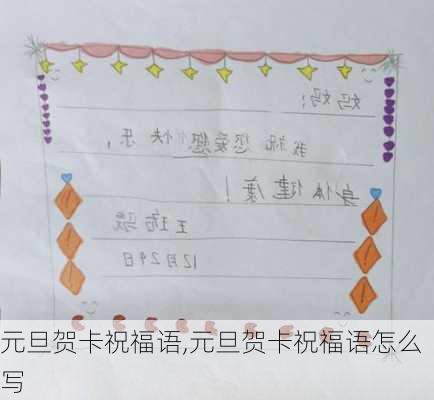 妈妈：
我祝您爱您快乐，
身体健康！
王
12月29日
元旦贺卡祝福语,元旦贺卡祝福语怎么
写